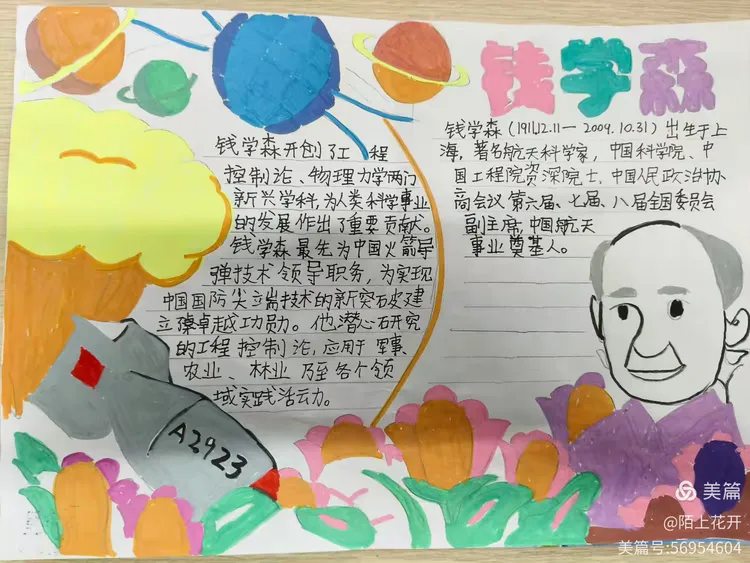 钱学森
钱学森开创了工程
控制论、物理力学两门
新兴学科,为人类科学事业
的发展作出了重要贡献。
钱学森最先为中国火箭导
弹技术领导职务,为实现
中国国防尖端技术的新突破建
立了卓越功勋。他潜心研究
的工程控制论,应用于军事、
农业、林业乃至各个领
域实践活动。
钱学森(1911.12.11—2009.10.31)出生于上
海,著名航天科学家,中国科学院、中
国工程院资深院士,中国人民政治协
商会议第六届、七届、八届全国委员会
副主席,中国航天
事业奠基人。
A2923
美篇
@陌上花开
美篇号:56954604